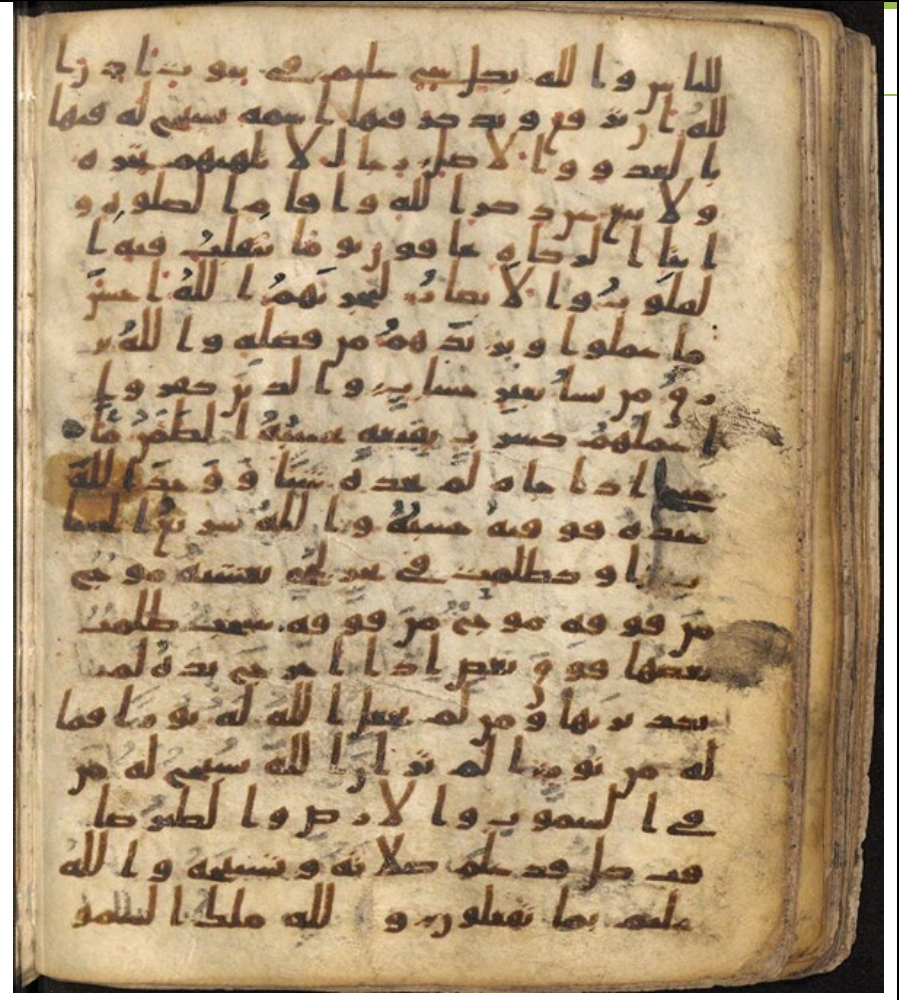 للناس والله بكل شي عليم في بيوت اذن ا
لله ان ترفع ويذكر فيها اسمه يسبح له فيها
بالغدو والاصل رجال لا تلهيهم تجره
ولا بيع عن ذكر الله واقام الصلوه و
ايتا الزكاه يخافون يوما تتقلب فيه ا
لقلوب والابصار ليجزيهم الله احسن
ما عملوا ويزيدهم من فضله والله ير
زق من يشا بغير حساب والذين كفروا
اعملهم كسرب بقيعه يحسبه الظمن ما
حتى اذا جاه لم يجده شيا ووجد الله
عنده فوفيه حسبه والله سريع الحسا
ب او كظلمت في بحر لجي يغشيه موج
من فوقه موج من فوقه سحب ظلمت
بعضها فوق بعض اذا اخرج يده لم
يكد يريها ومن لم يجعل الله له نورا فما
له من نور الم تر ان الله يسبح له من
في السموت والارض والطير صا
فت كل قد علم صلاته وتسبيحه والله
عليم بما يفعلون ولله ملك السمو